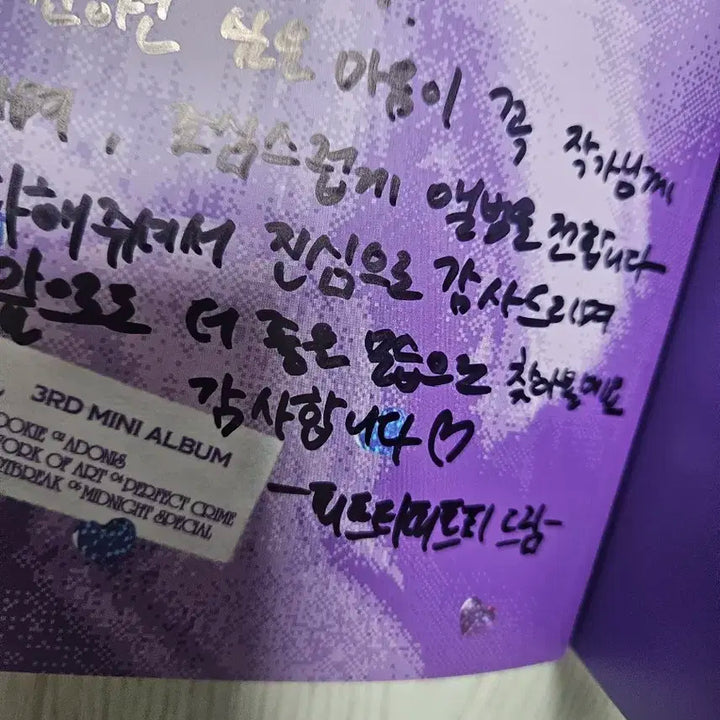 싶은 마음이 꼭 작가님께
, 조심스럽게 앨범을 전합니다
해주셔서 진심으로 감사드리며
앞으로도 더 좋은 모습으로 찾아뵐게요
감사합니다♡
-피프티피프티 드림-
3RD MINI ALBUM
OOKIE 02 ADONIS
WORK OF ART 04 PERFECT CRIME
RTBREAK 06 MIDNIGHT SPECIAL